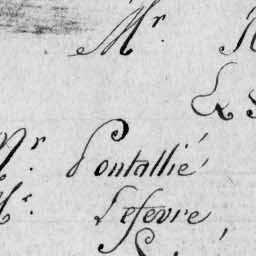 Mr.
&
Mr. Pontallié
Mr. Lefevre